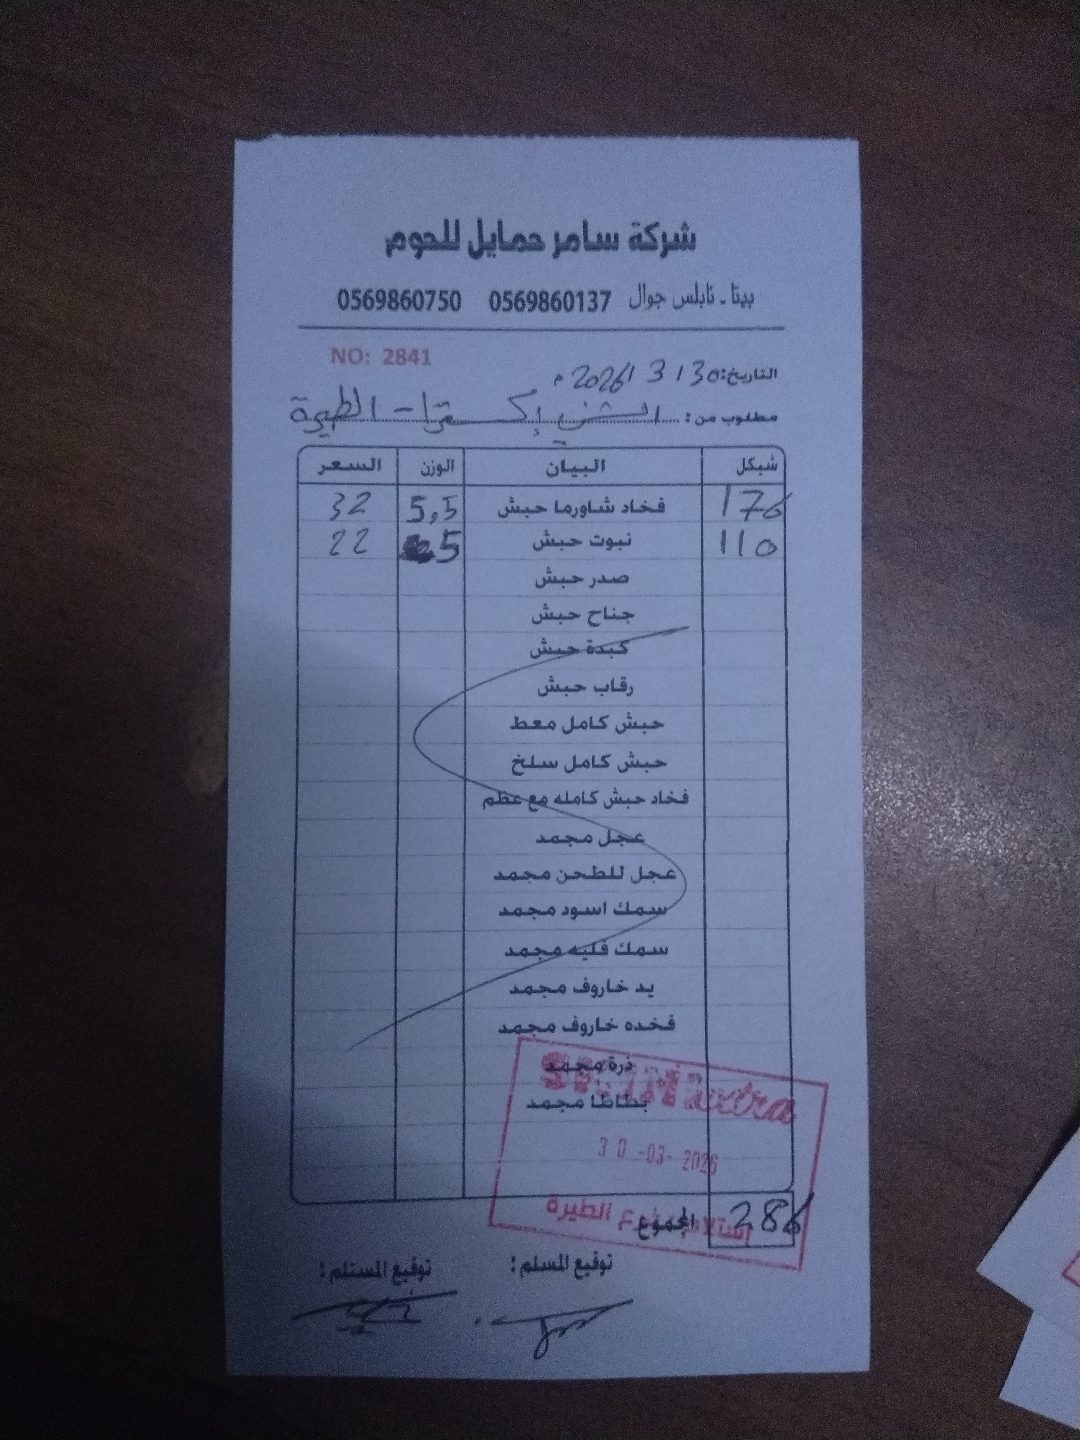 شركة سامر حمايل للحوم
بيتا - نابلس جوال 0569860137 0569860750
NO: 2841
التاريخ: 30 / 3 / 2026 م
مطلوب من: الشني إكسترا - الطيرة
شيكل البيان الوزن السعر
176 فخاد شاورما حبش 5,5 32
110 نبوت حبش 5 22
صدر حبش
جناح حبش
كبدة حبش
رقاب حبش
حبش كامل معط
حبش كامل سلخ
فخاد حبش كامله مع عظم
عجل مجمد
عجل للطحن مجمد
سمك اسود مجمد
سمك فليه مجمد
يد خاروف مجمد
فخده خاروف مجمد
ذرة مجمد
بطاطا مجمد
extra
30 -03- 2026
فرع الطيرة
المجموع 286
توقيع المسلم : توقيع المستلم :